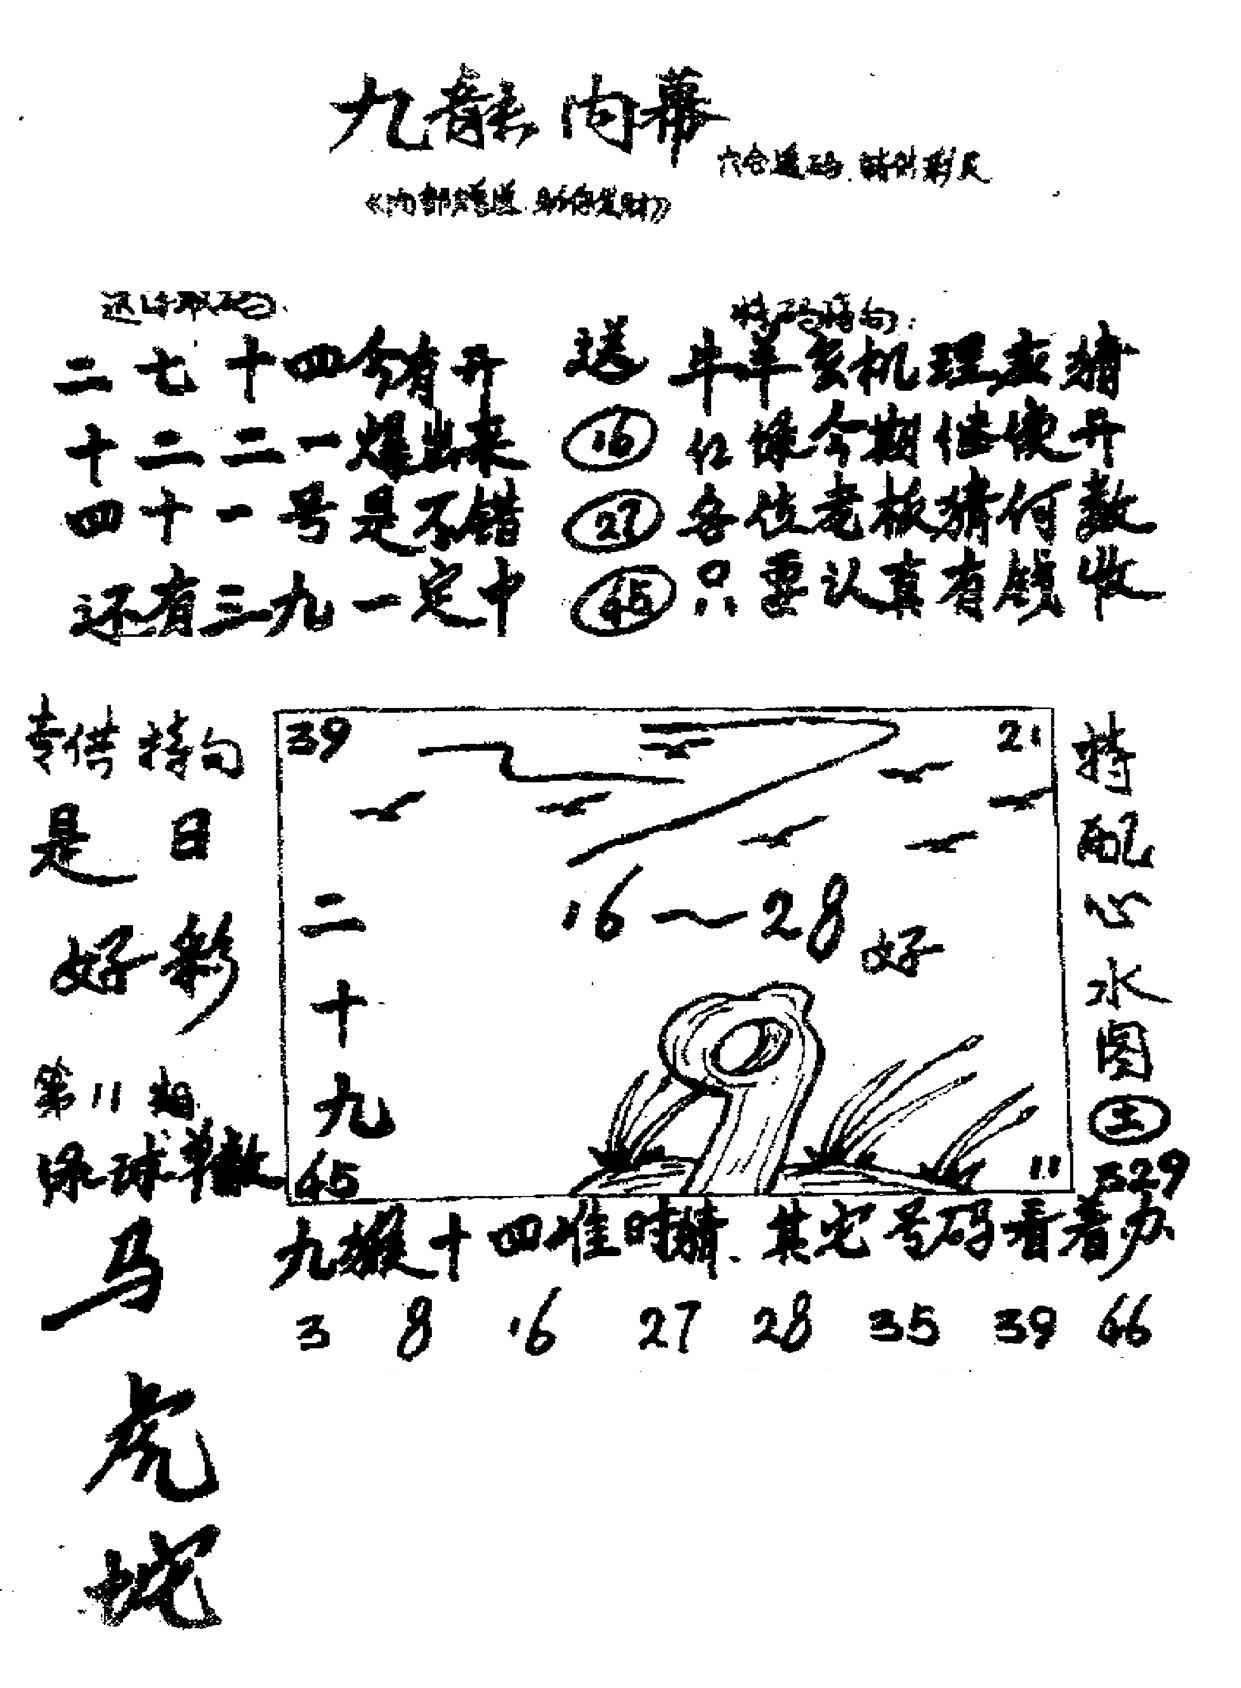 九龍内幕
六合透码.特供彩民
《内部赠送.助你发财》
送诗取码
特码诗句:
二七十四今有开
送
牛羊玄机理应猜
十二二一爆出来
16
红绿今期继续开
四十一号是不错
27
各位老板猜何数
还有三九一定中
45
只要认真有钱收
专供特句
是日
好彩
第11期
绿球单数
马
虎
蛇
39
21
16~28好
二十九
45
11
特配心水图
土
329
九猴十四准时猜.其它号码看着办
3 8 16 27 28 35 39 46